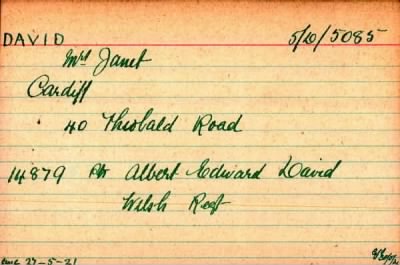 DAVID 5/D/5085
Mrs Janet
Cardiff
40 Theobald Road
14879 Pte Albert Edward David
Welsh Regt
27-5-21